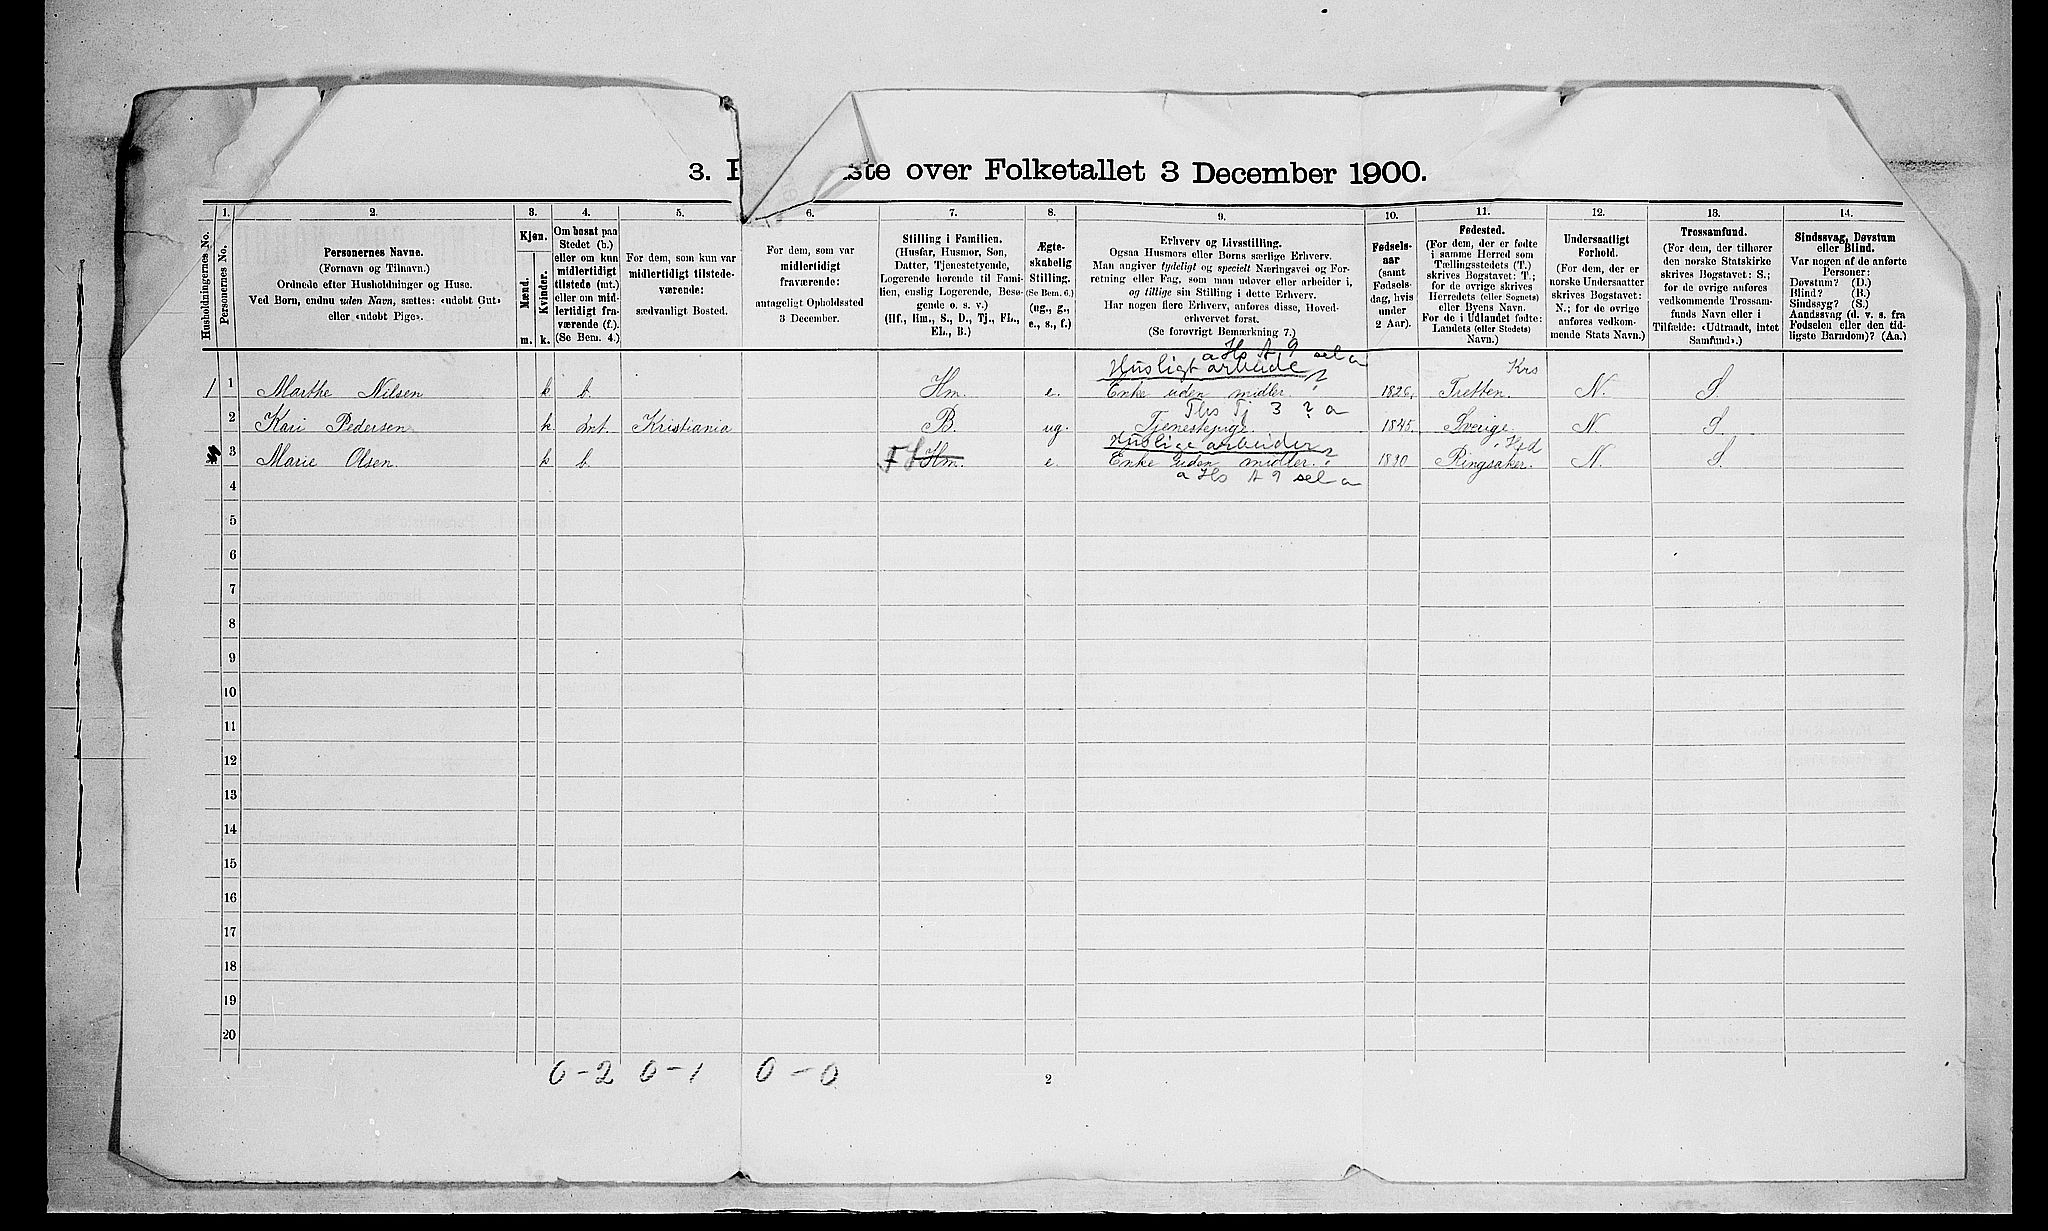 3. ste over Folketallet 3 December 1900.
1. 2. 3. 4. 5. 6. 7. 8. 9. 10. 11. 12. 13. 14.
Husholdningernes No.
Personernes No.
Personernes Navne.
(Fornavn og Tilnavn.)
Ordnede efter Husholdninger og Huse.
Ved Børn, endnu uden Navn, sættes: «udøbt Gut»
eller «udøbt Pige».
Kjøn.
Mænd.
Kvinder.
m. k.
Om bosat paa
Stedet (b.)
eller om kun
midlertidigt
tilstede (mt.)
eller om mid-
lertidigt fra-
værende (f.).
(Se Bem. 4.)
For dem, som kun var
midlertidigt tilstede-
værende:
sædvanligt Bosted.
For dem, som var
midlertidigt
fraværende:
antageligt Opholdssted
3 December.
Stilling i Familien.
(Husfar, Husmor, Søn,
Datter, Tjenestetyende,
Logerende hørende til Fami-
lien, enslig Logerende, Besø-
gende o. s. v.)
(Hf., Hm., S., D., Tj., FL.,
EL., B.)
Ægte-
skabelig
Stilling.
(Se Bem. 6.)
(ug., g.,
e., s., f.)
Erhverv og Livsstilling.
Ogsaa Husmors eller Børns særlige Erhverv.
Man angiver tydeligt og specielt Næringsvei og For-
retning eller Fag, som man udøver eller arbeider i,
og tillige sin Stilling i dette Erhverv.
Har nogen flere Erhverv, anføres disse, Hoved-
erhvervet først.
(Se forøvrigt Bemærkning 7.)
Fødsels-
aar
(samt
Fødsels-
dag, hvis
under
2 Aar).
Fødested.
(For dem, der er fødte
i samme Herred som
Tællingsstedets (T.)
skrives Bogstavet: T.;
for de øvrige skrives
Herredets (eller Sognets)
eller Byens Navn.
For de i Udlandet fødte:
Landets (eller Stedets)
Navn.)
Undersaatligt
Forhold.
(For dem, der er
norske Undersaatter
skrives Bogstavet:
N.; for de øvrige
anføres vedkom-
mende Stats Navn.)
Trossamfund.
(For dem, der tilhører
den norske Statskirke
skrives Bogstavet: S.;
for de øvrige anføres
vedkommende Trossam-
funds Navn eller i
Tilfælde: «Udtraadt, intet
Samfund».)
Sindssvag, Døvstum
eller Blind.
Var nogen af de anførte
Personer:
Døvstum? (D.)
Blind? (B.)
Sindssyg? (S.)
Aandssvag (d. v. s. fra
Fødselen eller den tid-
ligste Barndom)? (Aa.)
a Hs A 9 sel a
Husligt arbeide Krs
1 1 Marthe Nilsen k b. Hm. e. Enke uden midler. ? 1826. Tretten. N. S.
Ths Tj 3 ? a
2 Kari Pedersen k mt. Kristiania B. ug. Tjenestepige. 1845. Sverige. N. S.
Huslige arbeider Hed
3 Marie Olsen. k b. Hm. e. Enke uden midler. ? 1830 Ringsaker. N. S.
a Hs A 9 sel a
4
5
6
7
8
9
10
11
12
13
14
15
16
17
18
19
20
0-2 0-1 0-0
2